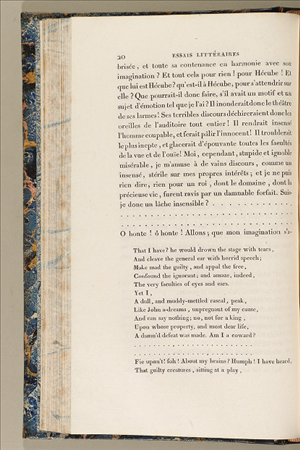 20 ESSAIS LITTÉRAIRES
brisée, et toute sa contenance en harmonie avec son
imagination ? Et tout cela pour rien ! pour Hécube ! Et
que lui est Hécube ? qu'est-il à Hécube, pour s'attendrir sur
elle ? Que pourrait-il donc faire, s'il avait un motif et un
sujet d'émotion tel que je l'ai ? Il inonderait donc le théâtre
de ses larmes ! Ses terribles discours déchireraient donc les
oreilles de l'auditoire tout entier ! Il rendrait insensé
l'homme coupable, et ferait pâlir l'innocent ! Il troublerait
le plus inepte, et glacerait d'épouvante toutes les facultés
de la vue et de l'ouïe ! Moi, cependant, stupide et ignoble
misérable, je m'amuse à de vains discours, comme un
insensé, stérile sur mes propres intérêts, et je ne puis
rien dire, rien pour un roi, dont le domaine, dont la
précieuse vie, furent ravis par un damnable forfait. Suis-
je donc un lâche insensible ? . . . . . . . . . . . .
. . . . . . . . . . . . . . . . . . . . . . . .
. . . . . . . . . . . . . . . . . . . . . . . .
O honte ! ô honte ! Allons ; que mon imagination s'é-
That I have? he would drown the stage with tears,
And cleave the general ear with horrid speech;
Make mad the guilty, and appal the free,
Confound the ignorant; and amaze, indeed,
The very faculties of eyes and ears.
Yet I,
A dull, and muddy-mettled rascal, peak,
Like John a-dreams, unpregnant of my cause,
And can say nothing; no, not for a king,
Upon whose property, and most dear life,
A damn'd defeat was made. Am I a coward?
. . . . . . . . . . . . . . . . . . . .
. . . . . . . . . . . . . . . . . . . .
Fie upon't! foh! About my brains! Humph! I have heard,
That guilty creatures, sitting at a play,